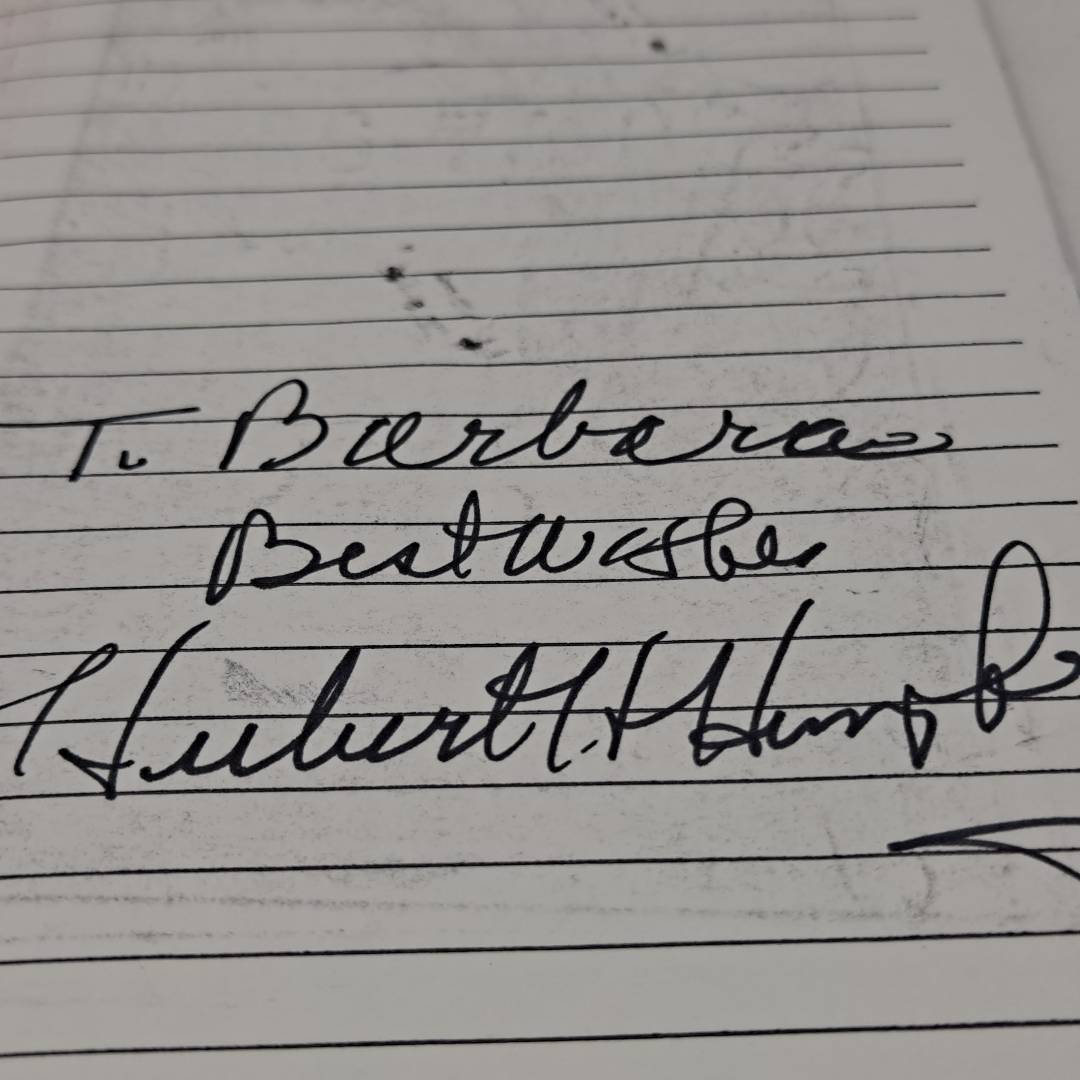 To Barbara
Best wishes
Hubert H. Humph